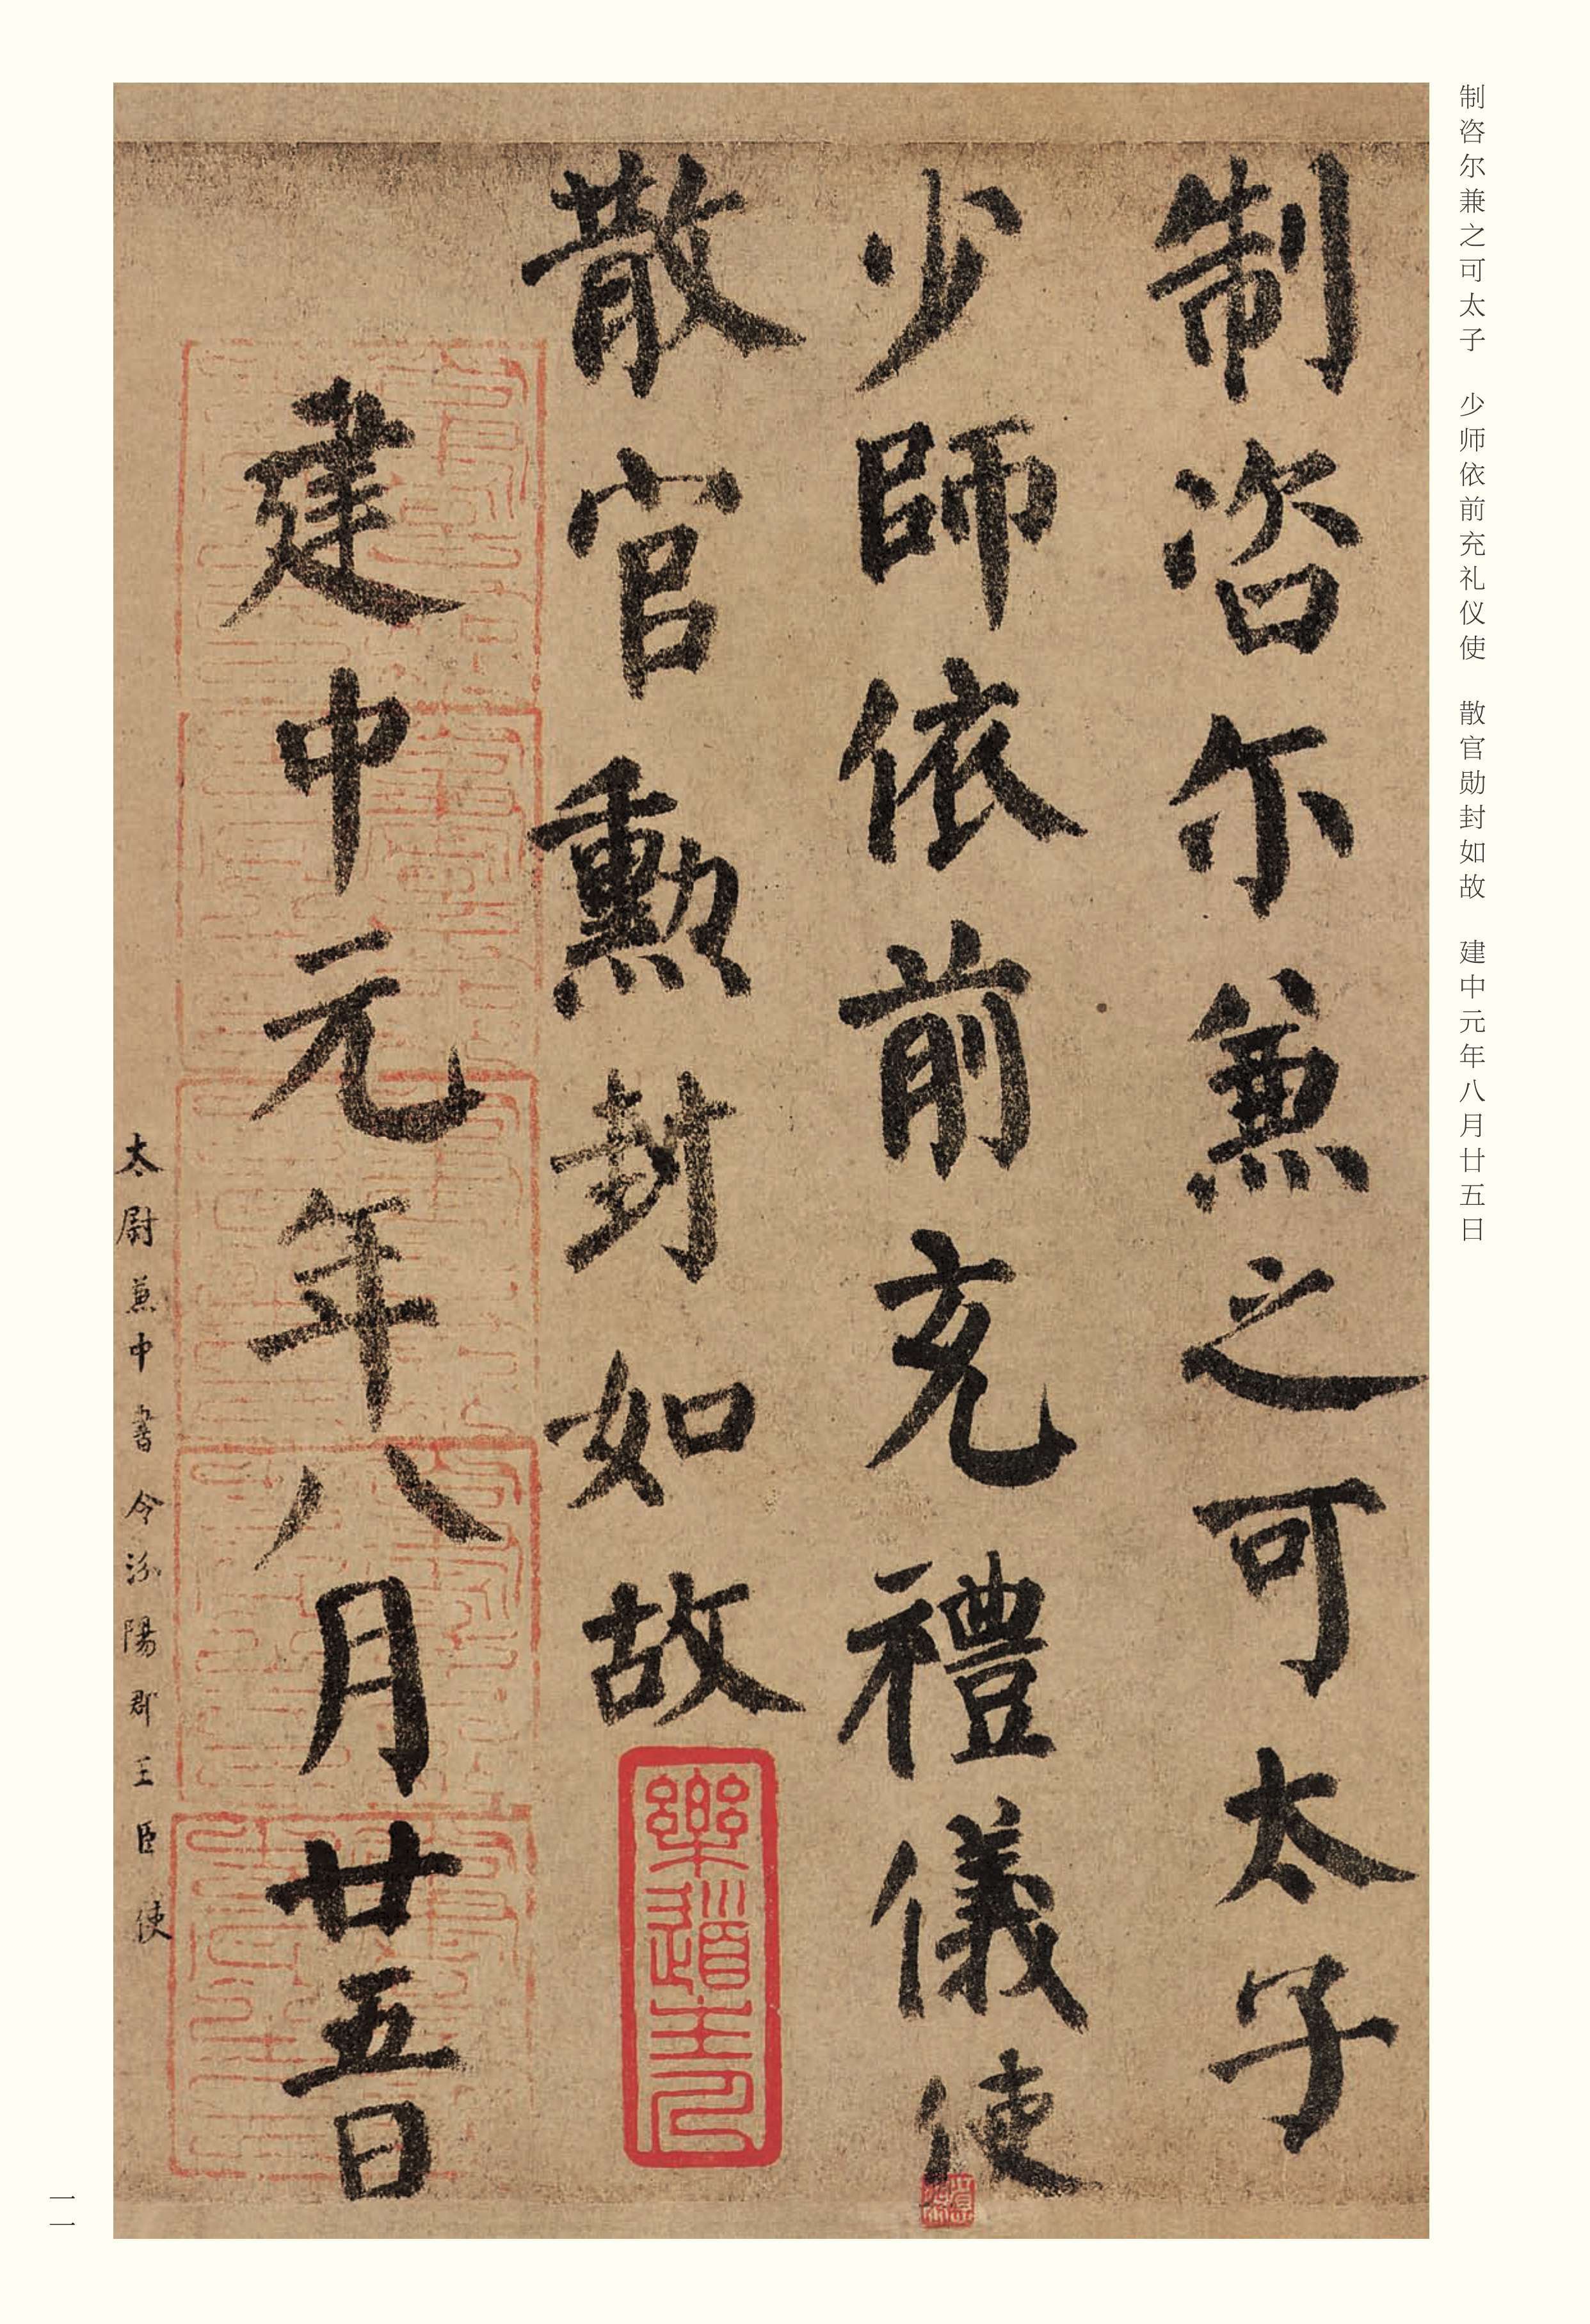 制咨尔兼之可太子　少师依前充礼仪使　散官勋封如故　建中元年八月廿五日
制咨尓兼之可太子
少師依前充禮儀使
散官勳封如故
樂道主人
建中元年八月廿五日
太尉兼中書令汾陽郡王臣使
一一